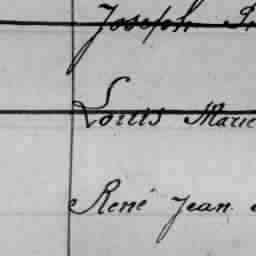 Joseph
Louis Marie
René Jean